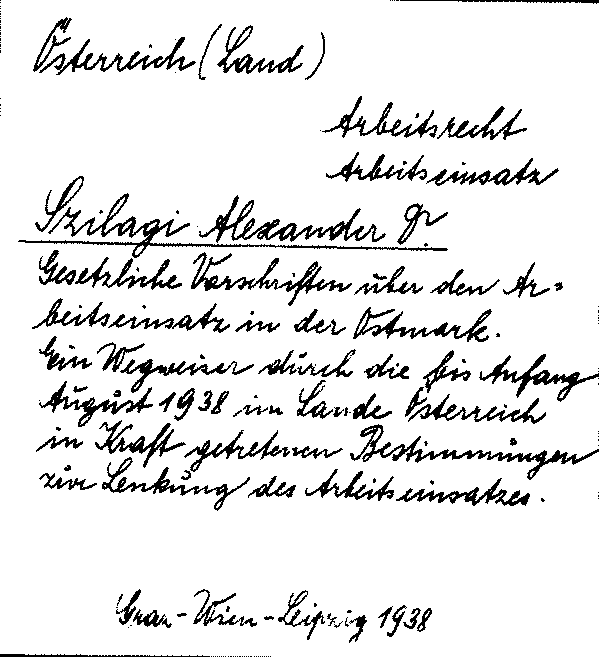 Österreich (Land)
Arbeitsrecht
Arbeitseinsatz
Szilagi Alexander Dr.
Gesetzliche Vorschriften über den Ar=
beitseinsatz in der Ostmark.
Ein Wegweiser durch die bis Anfang
August 1938 im Lande Österreich
in Kraft getretenen Bestimmungen
zur Lenkung des Arbeitseinsatzes.
Graz-Wien-Leipzig 1938